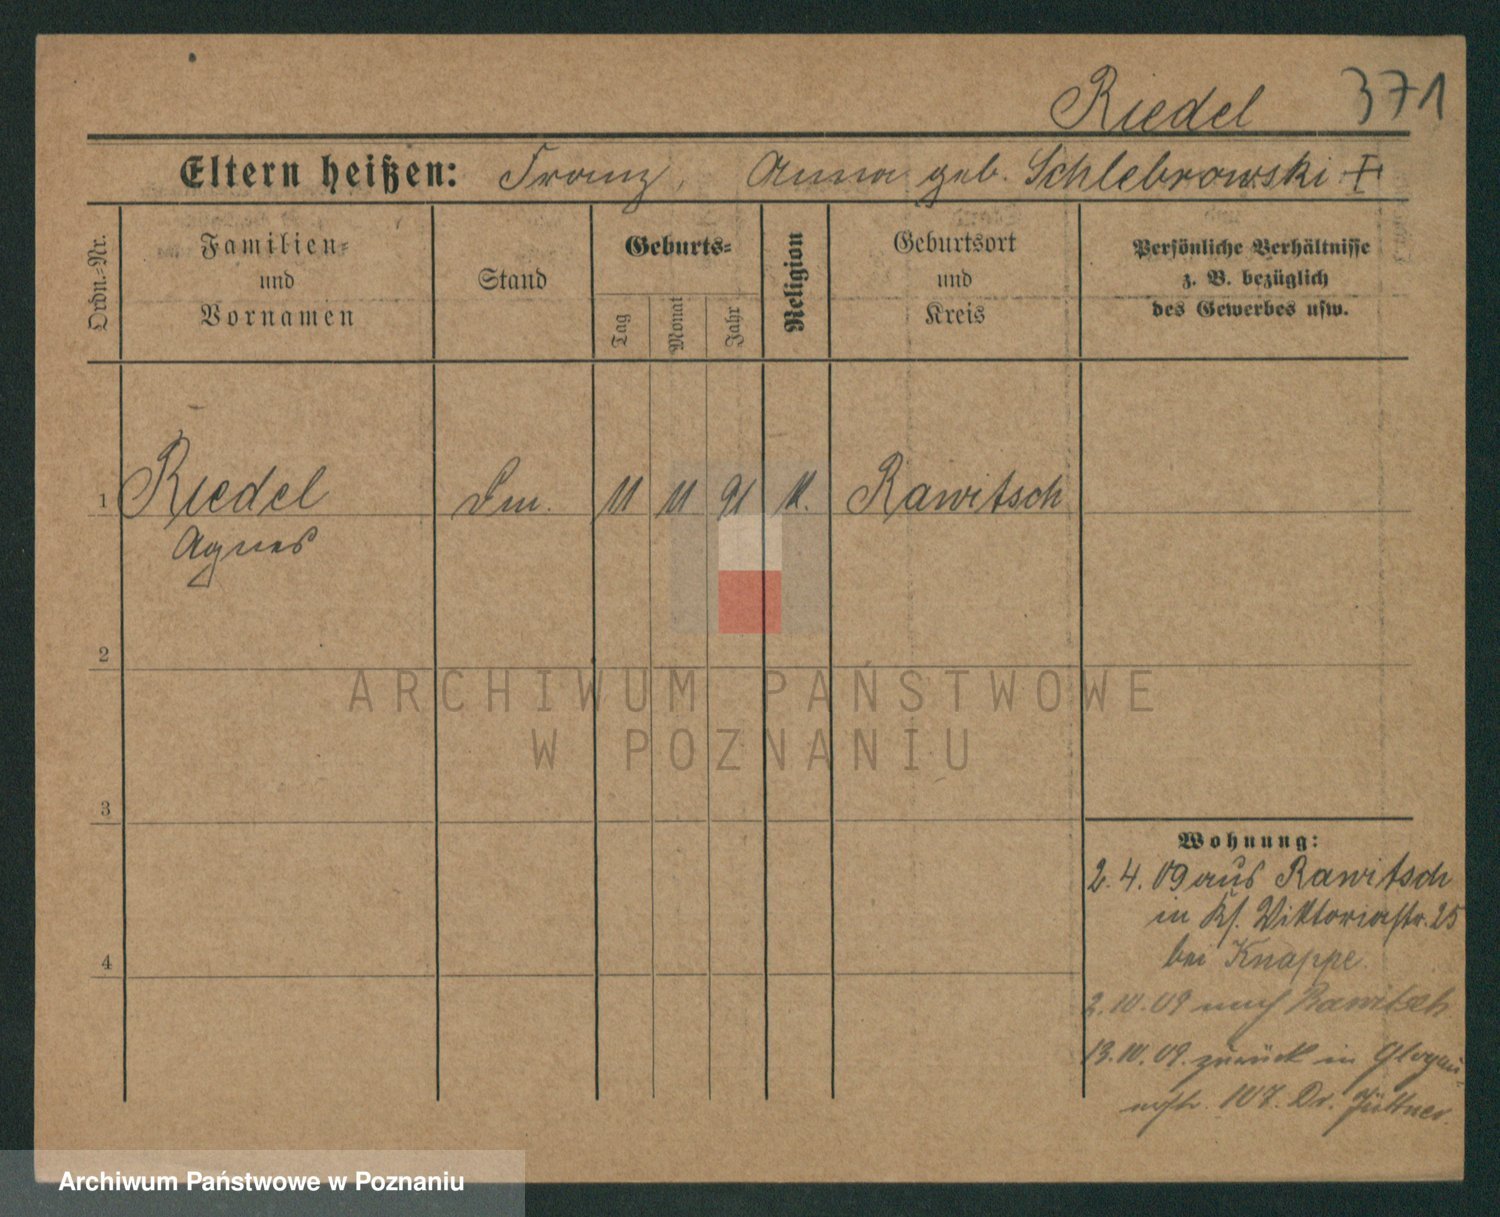 Riedel 371
Eltern heißen: Franz, Anna geb. Schlebrowski †
Ordn.-Nr.
Familien-
und
Vornamen
Stand
Geburts-
Tag
Monat
Jahr
Religion
Geburtsort
und
Kreis
Persönliche Verhältnisse
z. B. bezüglich
des Gewerbes usw.
1 Riedel 11 11 91 Rawitsch
Agnes
2
3
4
ARCHIWUM PAŃSTWOWE
W POZNANIU
Wohnung:
2. 4. 09 aus Rawitsch
in Viktoriastr. 25
bei Knappe
2. 10. 09 nach Rawitsch
13. 10. 09. zurück in Glogau-
erstr. 107. Dr. Jüttner.
Archiwum Państwowe w Poznaniu